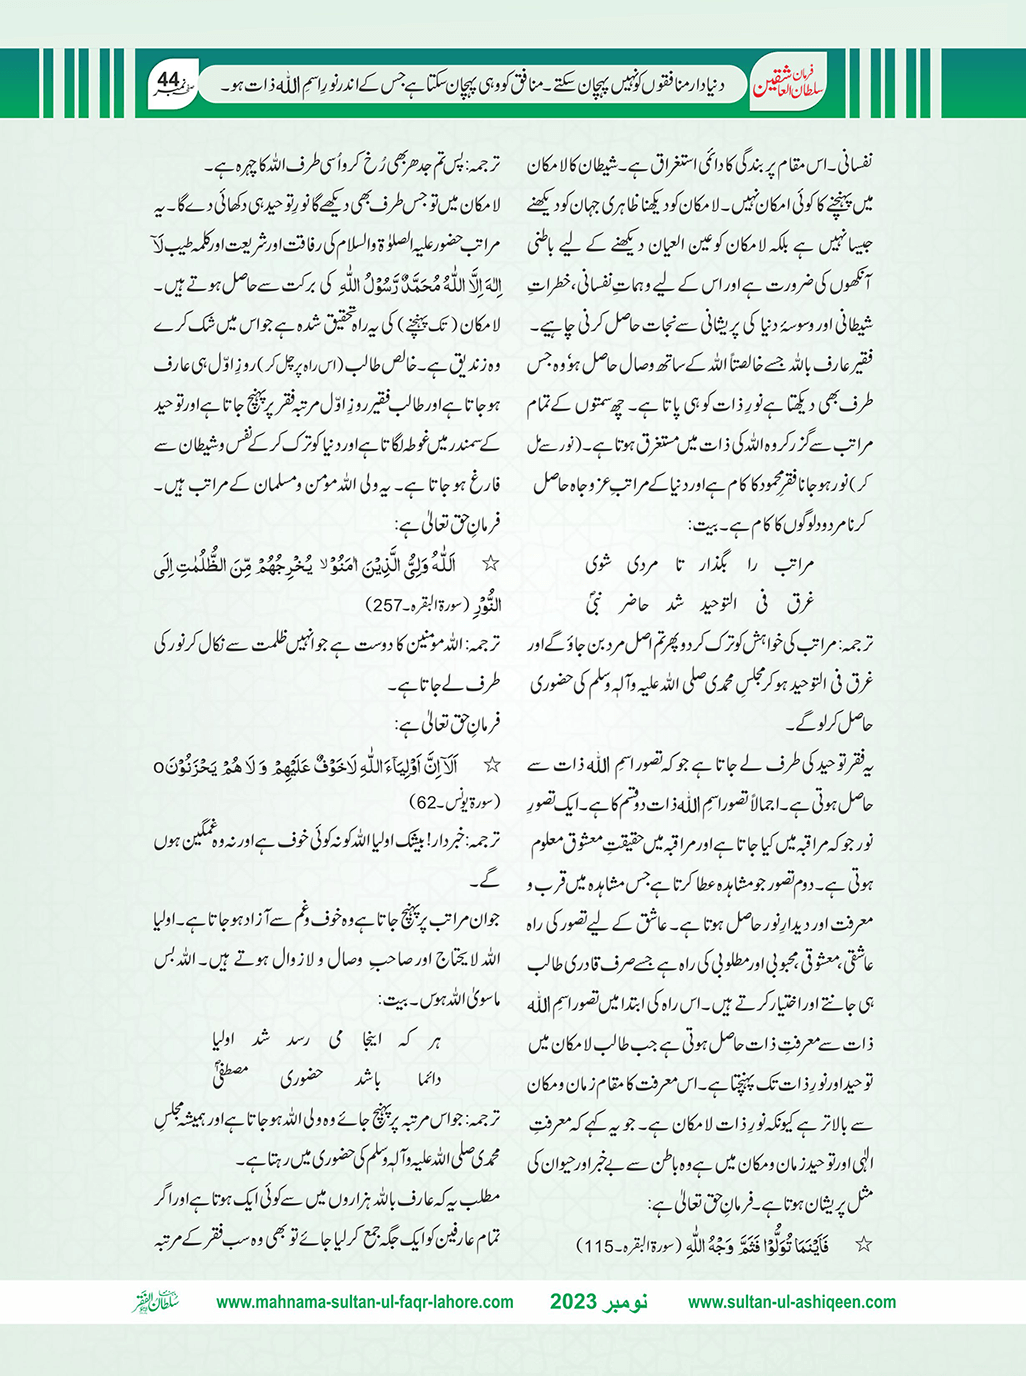 فرمان سلطان العاشقین
دنیا دار منافقوں کو نہیں پہچان سکتے۔ منافق کو وہی پہچان سکتا ہے جس کے اندر نورِ اسمِ اللہ ذات ہو۔
صفحہ نمبر 44
نفسانی۔ اس مقام پر بندگی کا دائمی استغراق ہے۔ شیطان کا لامکان
میں پہنچنے کا کوئی امکان نہیں۔ لامکان کو دیکھنا ظاہری جہان کو دیکھنے
جیسا نہیں ہے بلکہ لامکان کو عین العیان دیکھنے کے لیے باطنی
آنکھوں کی ضرورت ہے اور اس کے لیے وہماتِ نفسانی، خطراتِ
شیطانی اور وسوسۂ دنیا کی پریشانی سے نجات حاصل کرنی چاہیے۔
فقیر عارف باللہ جسے خالصتاً اللہ کے ساتھ وصال حاصل ہو‘ وہ جس
طرف بھی دیکھتا ہے نورِ ذات کو ہی پاتا ہے۔ چھ سمتوں کے تمام
مراتب سے گزر کر وہ اللہ کی ذات میں مستغرق ہوتا ہے۔ (نور سے مل
کر) نور ہو جانا فقرِ محمود کا کام ہے اور دنیا کے مراتبِ عز و جاہ حاصل
کرنا مردود لوگوں کا کام ہے۔ بیت:
مراتب را بگذار تا مردی شوی
غرق فی التوحید شد حاضر نبیؐ
ترجمہ: مراتب کی خواہش کو ترک کر دو پھر تم اصل مرد بن جاؤ گے اور
غرق فی التوحید ہو کر مجلسِ محمدی صلی اللہ علیہ وآلہٖ وسلم کی حضوری
حاصل کر لو گے۔
یہ فقر توحید کی طرف لے جاتا ہے جو کہ تصور اسمِ اللہ ذات سے
حاصل ہوتی ہے۔ اجمالاً تصور اسمِ اللہ ذات دو قسم کا ہے۔ ایک تصورِ
نور جو کہ مراقبہ میں کیا جاتا ہے اور مراقبہ میں حقیقتِ معشوق معلوم
ہوتی ہے۔ دوم تصور جو مشاہدہ عطا کرتا ہے جس مشاہدہ میں قرب و
معرفت اور دیدارِ نور حاصل ہوتا ہے۔ عاشق کے لیے تصور کی راہ
عاشقی، معشوقی، محبوبی اور مطلوبی کی راہ ہے جسے صرف قادری طالب
ہی جانتے اور اختیار کرتے ہیں۔ اس راہ کی ابتدا میں تصور اسمِ اللہ
ذات سے معرفتِ ذات حاصل ہوتی ہے جب طالب لامکان میں
توحید اور نورِ ذات تک پہنچتا ہے۔ اس معرفت کا مقام زمان و مکان
سے بالاتر ہے کیونکہ نورِ ذات لامکان ہے۔ جو یہ کہے کہ معرفتِ
الٰہی اور توحید زمان و مکان میں ہے وہ باطن سے بے خبر اور حیوان کی
مثل پریشان ہوتا ہے۔ فرمانِ حق تعالیٰ ہے:
☆ فَاَیْنَمَا تُوَلُّوْا فَثَمَّ وَجْہُ اللّٰہِ (سورۃ البقرہ۔115)
ترجمہ: پس تم جدھر بھی رُخ کرو اُسی طرف اللہ کا چہرہ ہے۔
لامکان میں تو جس طرف بھی دیکھے گا نورِ توحید ہی دکھائی دے گا۔ یہ
مراتب حضور علیہ الصلوٰۃ والسلام کی رفاقت اور شریعت اور کلمہ طیب لَآ
اِلٰہَ اِلَّا اللّٰہُ مُحَمَّدٌ رَّسُوْلُ اللّٰہِ کی برکت سے حاصل ہوتے ہیں۔
لامکان (تک پہنچنے) کی یہ راہ تحقیق شدہ ہے جو اس میں شک کرے
وہ زندیق ہے۔ خالص طالب (اس راہ پر چل کر) روزِ اوّل ہی عارف
ہو جاتا ہے اور طالب فقیر روزِ اوّل مرتبہ فقر پر پہنچ جاتا ہے اور توحید
کے سمندر میں غوطہ لگاتا ہے اور دنیا کو ترک کر کے نفس و شیطان سے
فارغ ہو جاتا ہے۔ یہ ولی اللہ مؤمن و مسلمان کے مراتب ہیں۔
فرمانِ حق تعالیٰ ہے:
☆ اَللّٰہُ وَلِیُّ الَّذِیْنَ اٰمَنُوْا لا یُخْرِجُھُمْ مِّنَ الظُّلُمٰتِ اِلَی
النُّوْرِ (سورۃ البقرہ۔257)
ترجمہ: اللہ مومنین کا دوست ہے جو انہیں ظلمت سے نکال کر نور کی
طرف لے جاتا ہے۔
فرمانِ حق تعالیٰ ہے:
☆ اَلَآ اِنَّ اَوْلِیَآءَ اللّٰہِ لَا خَوْفٌ عَلَیْہِمْ وَ لَا ھُمْ یَحْزَنُوْنَ o
(سورۃ یونس۔62)
ترجمہ: خبردار! بیشک اولیا اللہ کو نہ کوئی خوف ہے اور نہ وہ غمگین ہوں
گے۔
جو ان مراتب پر پہنچ جاتا ہے وہ خوف و غم سے آزاد ہو جاتا ہے۔ اولیا
اللہ لایحتاج اور صاحبِ وصال و لازوال ہوتے ہیں۔ اللہ بس
ماسویٰ اللہ ہوس۔ بیت:
ہر کہ اینجا می رسد شد اولیا
دائما باشد حضوری مصطفیؐ
ترجمہ: جو اس مرتبہ پر پہنچ جائے وہ ولی اللہ ہو جاتا ہے اور ہمیشہ مجلسِ
محمدی صلی اللہ علیہ وآلہٖ وسلم کی حضوری میں رہتا ہے۔
مطلب یہ کہ عارف باللہ ہزاروں میں سے کوئی ایک ہوتا ہے اور اگر
تمام عارفین کو ایک جگہ جمع کر لیا جائے تو بھی وہ سب فقر کے مرتبہ
سلطان الفقر
www.mahnama-sultan-ul-faqr-lahore.com
نومبر 2023
www.sultan-ul-ashiqeen.com